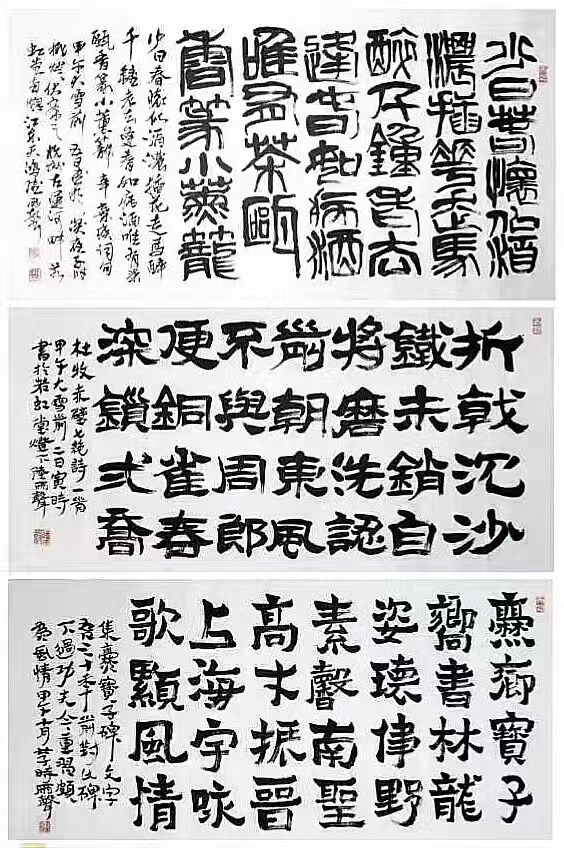 少日春懷似酒
濃插花走馬
醉千鍾老去
逢春如病酒
唯有茶甌
香篆小簾櫳
少日春懷似酒濃插花走馬醉
千鍾老去逢春如病酒唯有茶
甌香篆小簾櫳 辛棄疾詞句
甲午大雪前
折戟沉沙
鐵未銷自
將磨洗認
前朝東風
不與周郎
便銅雀春
深鎖弍喬
杜牧赤壁七絕詩一首
甲午大雪前二日寅時
書於若虹堂燈下陸雨聲
爨鄉寶子
嚮書林龍
姿瓌偉野
素馨南聖
高才振晉
上海宇咏
歌顯風情
集爨寶子碑文字
吾二十季前對此碑
下過功夫今重習頗
風情甲午十月 時雨聲